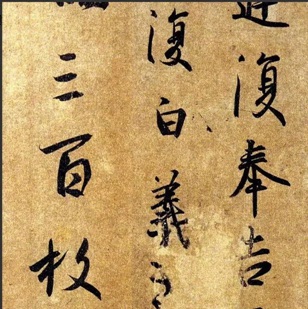 復奉告
復白義之
三百枚